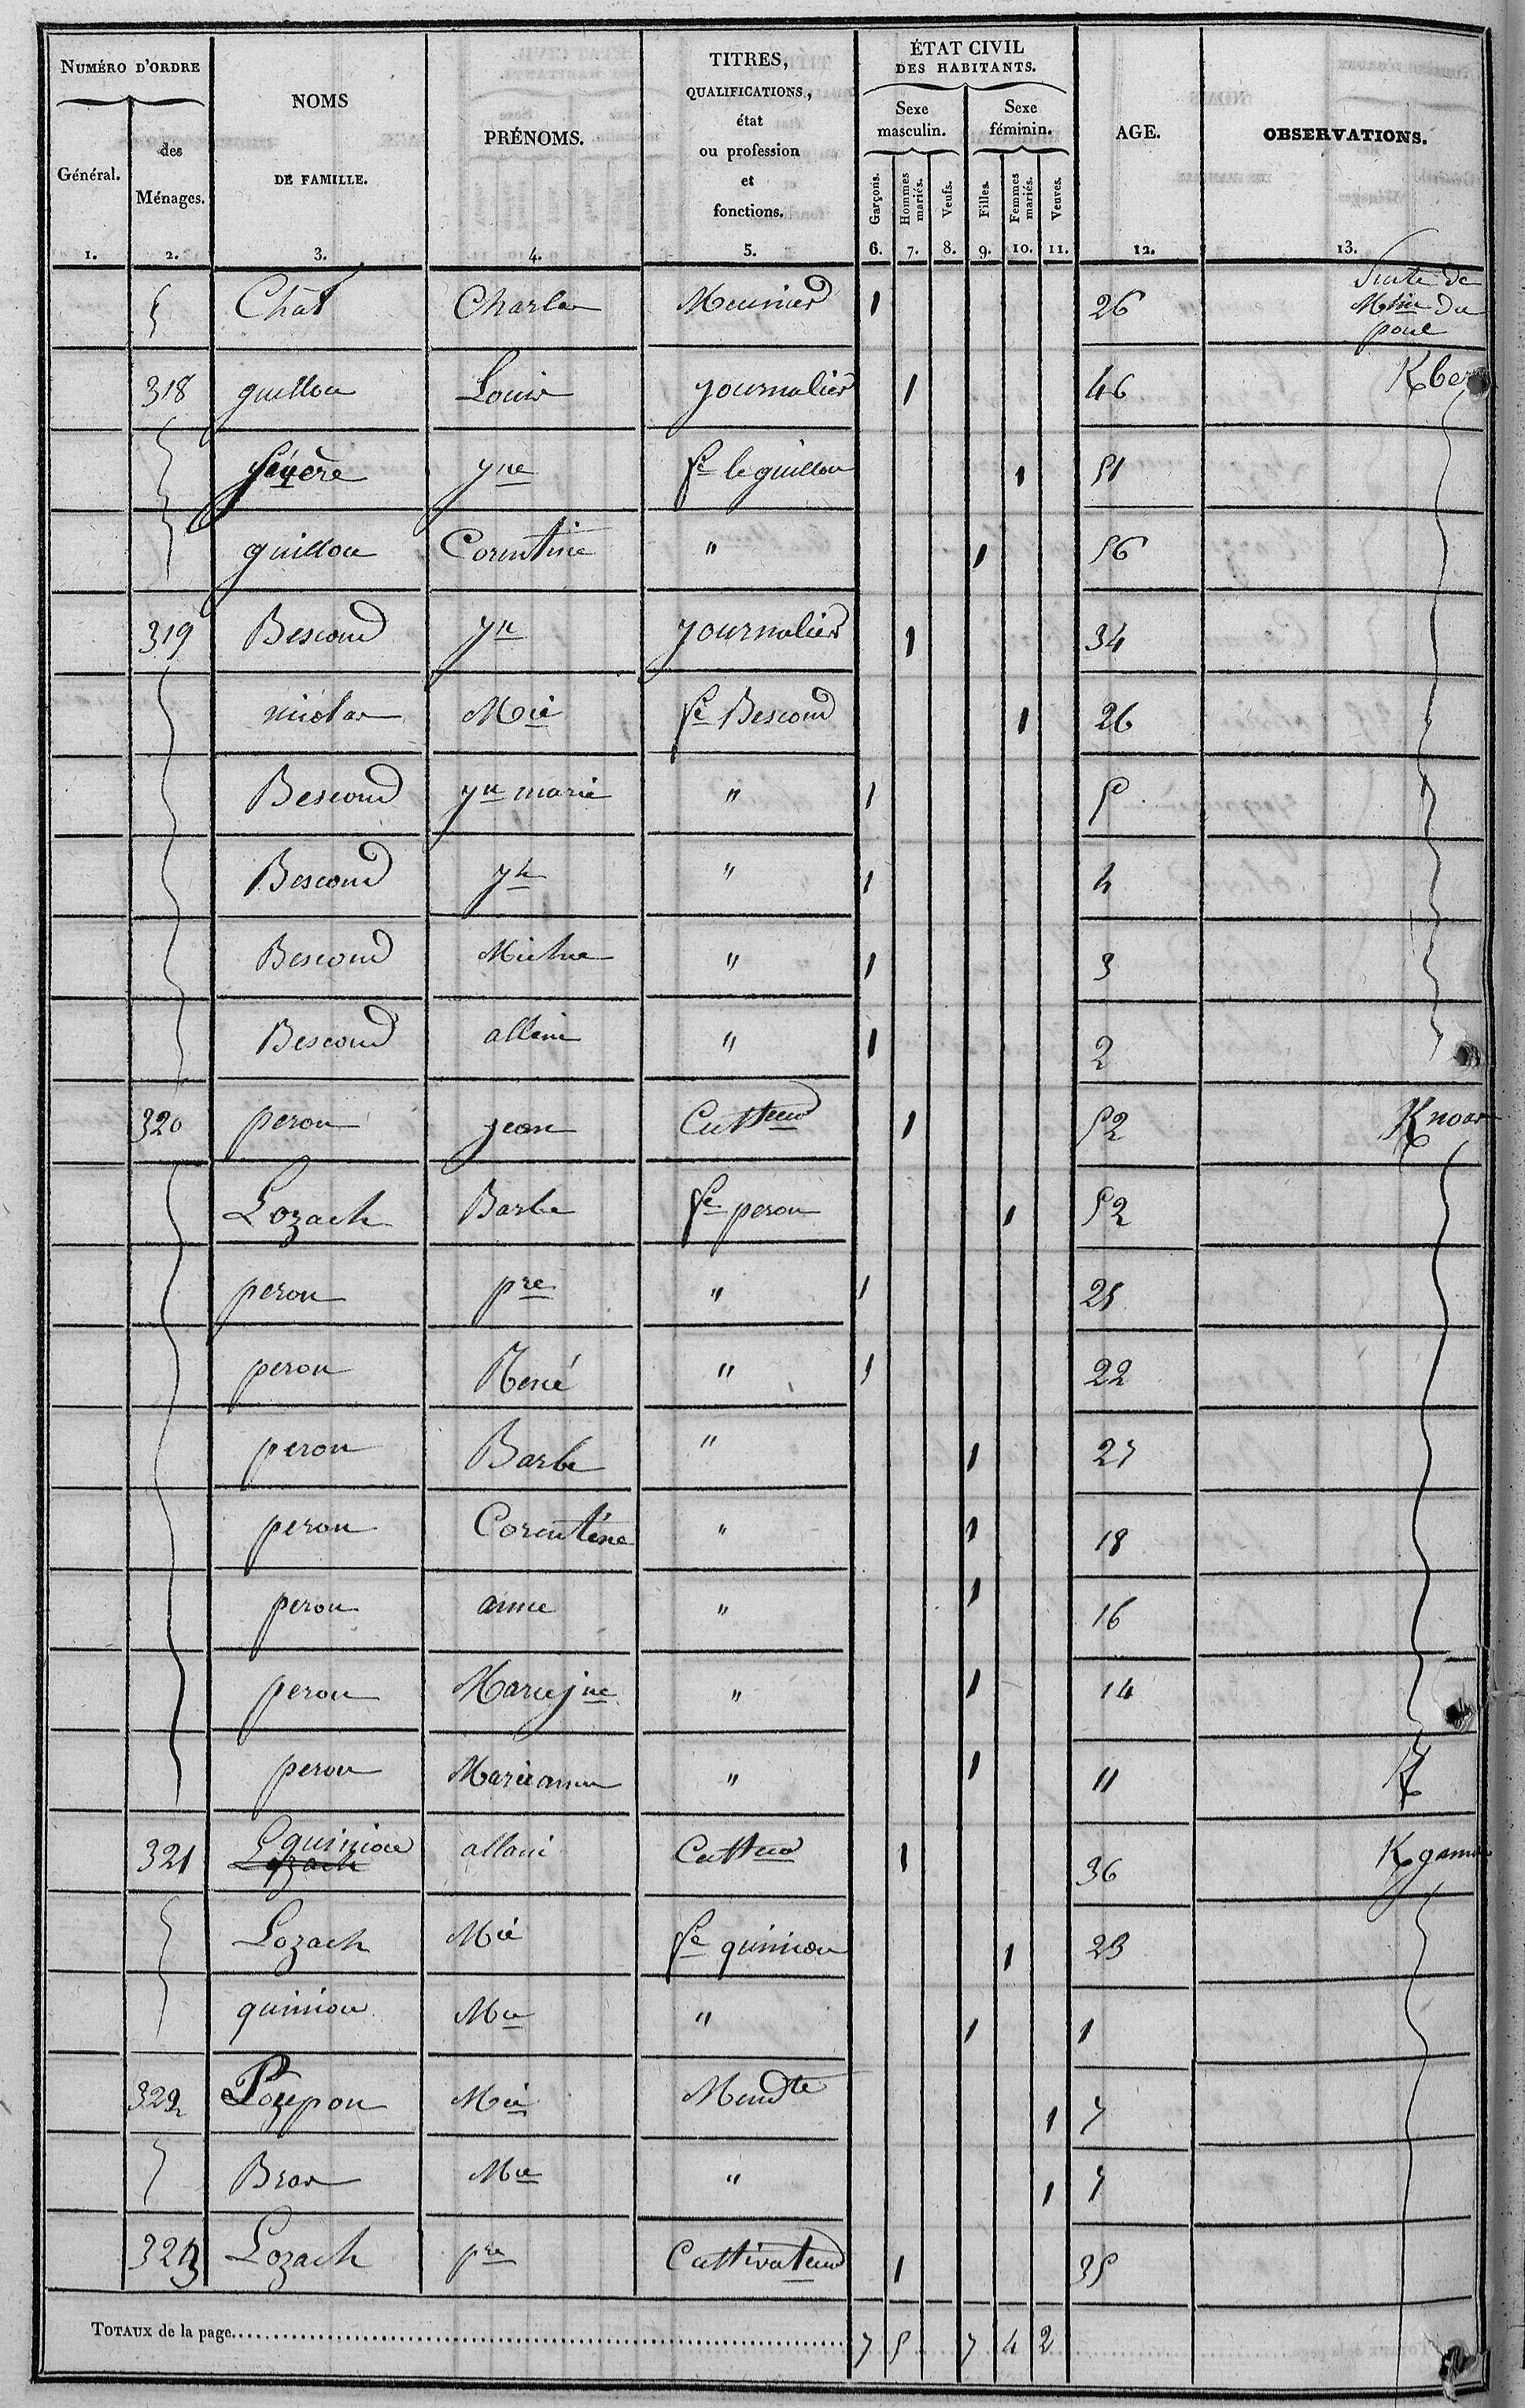 NUMÉRO D'ORDRE
Général.
des Ménages.
NOMS
DE FAMILLE.
PRÉNOMS.
TITRES,
QUALIFICATIONS,
état
ou profession
et
fonctions.
ÉTAT CIVIL
DES HABITANTS.
Sexe masculin.
Sexe féminin.
Garçons.
Hommes mariés.
Veufs.
Filles.
Femmes mariés.
Veuves.
AGE.
OBSERVATIONS.
1. 2. 3. 4. 5. 6. 7. 8. 9. 10. 11. 12. 13.
Chat Charles Meunier 1 26 Suite de Mlin du poul
318 guillou Louis journalier 1 46 Kber
yne fe le guillou 1 51
guillou Corentine " 1 56
319 Bescond yn journalier 1 34
nicolas Mie fe Bescond 1 26
Bescond yn marie " 1 5
Bescond yn " 1 4
Bescond " 1 3
Bescond allain " 1 2
320 peron jean Cultteur 1 52 Knoas
Lozach Barbe fe peron 1 52
peron pre " 1 25
peron René " 1 22
peron Barbe " 1 27
peron Corentine " 1 18
peron anne " 1 16
peron Marie jne " 1 14
peron Marie anne " 1 11 K
321 Lozach quiniou allain Cultteur 1 36 Kgam
Lozach Mie fe quiniou 1 23
quiniou Mie " 1 1
322 Poupon Mie Mendte 1 7
Bras Mie " 1 7
323 Lozach pre Cultivateur 1 35
TOTAUX de la page 7 5 7 4 2